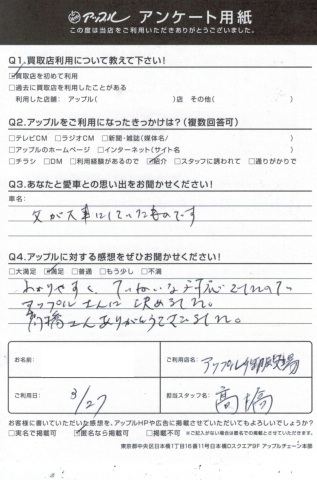 アップル アンケート用紙
この度は当店をご利用いただきありがとうございました。
Q1.買取店利用について教えて下さい!
☑買取店を初めて利用
□過去に買取店を利用したことがある
利用した店舗: アップル( )店 その他( )
Q2.アップルをご利用になったきっかけは?(複数回答可)
□テレビCM □ラジオCM □新聞・雑誌(媒体名/ )
□アップルのホームページ □インターネット(サイト名 )
□チラシ □DM □利用経験があるので ☑紹介 □スタッフに誘われて □通りがかりで
Q3.あなたと愛車との思い出をお聞かせください!
車名:
父が大事にしていたものです
Q4.アップルに対する感想をぜひお聞かせください!
□大満足 ☑満足 □普通 □もう少し □不満
わかりやすく、ていねいな対応でしたので
アップルさんに決めました。
髙橋さんありがとうございました。
お名前:
ご利用店名:
アップル
ご利用日:
3/27
担当スタッフ名:
髙橋
お客様に書いていただいた感想を、アップルHPや広告に掲載させていただいてもよろしいでしょうか?
□実名で掲載可 ☑匿名なら掲載可 □掲載不可 ※ご記入がない場合は匿名での掲載とさせていただきます。
東京都中央区日本橋1丁目16番11号日本橋Dスクエア9F アップルチェーン本部